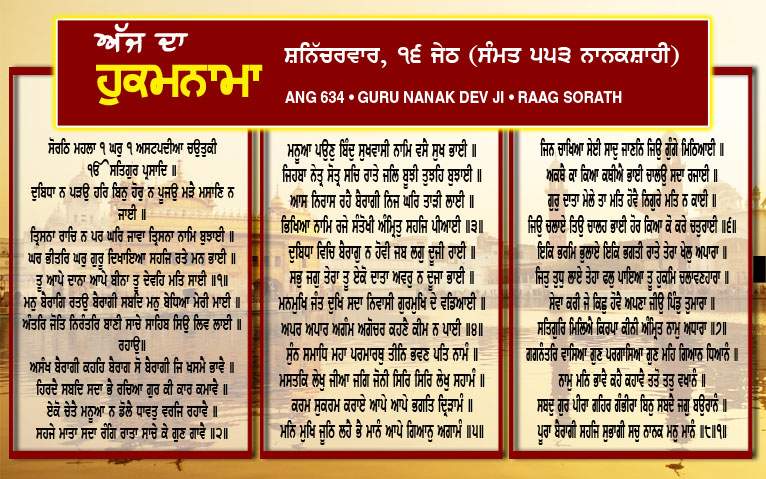 ਅੱਜ ਦਾ
ਹੁਕਮਨਾਮਾ
ਸ਼ਨਿੱਚਰਵਾਰ, ੧੬ ਜੇਠ (ਸੰਮਤ ੫੫੩ ਨਾਨਕਸ਼ਾਹੀ)
ANG 634 • GURU NANAK DEV JI • RAAG SORATH
ਸੋਰਠਿ ਮਹਲਾ ੧ ਘਰੁ ੧ ਅਸਟਪਦੀਆ ਚਉਤੁਕੀ
ੴ ਸਤਿਗੁਰ ਪ੍ਰਸਾਦਿ ॥
ਦੁਬਿਧਾ ਨ ਪੜਉ ਹਰਿ ਬਿਨੁ ਹੋਰੁ ਨ ਪੂਜਉ ਮੜੈ ਮਸਾਣਿ ਨ
ਜਾਈ ॥
ਤ੍ਰਿਸਨਾ ਰਾਚਿ ਨ ਪਰ ਘਰਿ ਜਾਵਾ ਤ੍ਰਿਸਨਾ ਨਾਮਿ ਬੁਝਾਈ ॥
ਘਰ ਭੀਤਰਿ ਘਰੁ ਗੁਰੂ ਦਿਖਾਇਆ ਸਹਜਿ ਰਤੇ ਮਨ ਭਾਈ ॥
ਤੂ ਆਪੇ ਦਾਨਾ ਆਪੇ ਬੀਨਾ ਤੂ ਦੇਵਹਿ ਮਤਿ ਸਾਈ ॥੧॥
ਮਨੁ ਬੈਰਾਗਿ ਰਤਉ ਬੈਰਾਗੀ ਸਬਦਿ ਮਨੁ ਬੇਧਿਆ ਮੇਰੀ ਮਾਈ ॥
ਅੰਤਰਿ ਜੋਤਿ ਨਿਰੰਤਰਿ ਬਾਣੀ ਸਾਚੇ ਸਾਹਿਬ ਸਿਉ ਲਿਵ ਲਾਈ ॥
ਰਹਾਉ॥
ਅਸੰਖ ਬੈਰਾਗੀ ਕਹਹਿ ਬੈਰਾਗ ਸੋ ਬੈਰਾਗੀ ਜਿ ਖਸਮੈ ਭਾਵੈ ॥
ਹਿਰਦੈ ਸਬਦਿ ਸਦਾ ਭੈ ਰਚਿਆ ਗੁਰ ਕੀ ਕਾਰ ਕਮਾਵੈ ॥
ਏਕੋ ਚੇਤੈ ਮਨੂਆ ਨ ਡੋਲੈ ਧਾਵਤੁ ਵਰਜਿ ਰਹਾਵੈ ॥
ਸਹਜੇ ਮਾਤਾ ਸਦਾ ਰੰਗਿ ਰਾਤਾ ਸਾਚੇ ਕੇ ਗੁਣ ਗਾਵੈ ॥੨॥
ਮਨੂਆ ਪਉਣੁ ਬਿੰਦੁ ਸੁਖਵਾਸੀ ਨਾਮਿ ਵਸੈ ਸੁਖ ਭਾਈ ॥
ਜਿਹਬਾ ਨੇਤ੍ਰ ਸੋਤ੍ਰ ਸਚਿ ਰਾਤੇ ਜਲਿ ਬੂਝੀ ਤੁਝਹਿ ਬੁਝਾਈ ॥
ਆਸ ਨਿਰਾਸ ਰਹੈ ਬੈਰਾਗੀ ਨਿਜ ਘਰਿ ਤਾੜੀ ਲਾਈ ॥
ਭਿਖਿਆ ਨਾਮਿ ਰਜੇ ਸੰਤੋਖੀ ਅੰਮ੍ਰਿਤੁ ਸਹਜਿ ਪੀਆਈ ॥੩॥
ਦੁਬਿਧਾ ਵਿਚਿ ਬੈਰਾਗੁ ਨ ਹੋਵੀ ਜਬ ਲਗੁ ਦੂਜੀ ਰਾਈ ॥
ਸਭੁ ਜਗੁ ਤੇਰਾ ਤੂ ਏਕੋ ਦਾਤਾ ਅਵਰੁ ਨ ਦੂਜਾ ਭਾਈ ॥
ਮਨਮੁਖਿ ਜੰਤ ਦੁਖਿ ਸਦਾ ਨਿਵਾਸੀ ਗੁਰਮੁਖਿ ਦੇ ਵਡਿਆਈ ॥
ਅਪਰ ਅਪਾਰ ਅਗੰਮ ਅਗੋਚਰ ਕਹਣੈ ਕੀਮ ਨ ਪਾਈ ॥੪॥
ਸੁੰਨ ਸਮਾਧਿ ਮਹਾ ਪਰਮਾਰਥੁ ਤੀਨਿ ਭਵਣ ਪਤਿ ਨਾਮੰ ॥
ਮਸਤਕਿ ਲੇਖੁ ਜੀਆ ਜਗਿ ਜੋਨੀ ਸਿਰਿ ਸਿਰਿ ਲੇਖੁ ਸਹਾਮੰ ॥
ਕਰਮ ਸੁਕਰਮ ਕਰਾਏ ਆਪੇ ਆਪੇ ਭਗਤਿ ਦ੍ਰਿੜਾਮੰ ॥
ਮਨਿ ਮੁਖਿ ਜੂਠਿ ਲਹੈ ਭੈ ਮਾਨੰ ਆਪੇ ਗਿਆਨੁ ਅਗਾਮੰ ॥੫॥
ਜਿਨ ਚਾਖਿਆ ਸੇਈ ਸਾਦੁ ਜਾਣਨਿ ਜਿਉ ਗੁੰਗੇ ਮਿਠਿਆਈ ॥
ਅਕਥੈ ਕਾ ਕਿਆ ਕਥੀਐ ਭਾਈ ਚਾਲਉ ਸਦਾ ਰਜਾਈ ॥
ਗੁਰੁ ਦਾਤਾ ਮੇਲੇ ਤਾ ਮਤਿ ਹੋਵੈ ਨਿਗੁਰੇ ਮਤਿ ਨ ਕਾਈ ॥
ਜਿਉ ਚਲਾਏ ਤਿਉ ਚਾਲਹ ਭਾਈ ਹੋਰ ਕਿਆ ਕੋ ਕਰੇ ਚਤੁਰਾਈ ॥੬॥
ਇਕਿ ਭਰਮਿ ਭੁਲਾਏ ਇਕਿ ਭਗਤੀ ਰਾਤੇ ਤੇਰਾ ਖੇਲੁ ਅਪਾਰਾ ॥
ਜਿਤੁ ਤੁਧੁ ਲਾਏ ਤੇਹਾ ਫਲੁ ਪਾਇਆ ਤੂ ਹੁਕਮਿ ਚਲਾਵਣਹਾਰਾ ॥
ਸੇਵਾ ਕਰੀ ਜੇ ਕਿਛੁ ਹੋਵੈ ਅਪਣਾ ਜੀਉ ਪਿੰਡੁ ਤੁਮਾਰਾ ॥
ਸਤਿਗੁਰਿ ਮਿਲਿਐ ਕਿਰਪਾ ਕੀਨੀ ਅੰਮ੍ਰਿਤ ਨਾਮੁ ਅਧਾਰਾ ॥੭॥
ਗਗਨੰਤਰਿ ਵਾਸਿਆ ਗੁਣ ਪਰਗਾਸਿਆ ਗੁਣ ਮਹਿ ਗਿਆਨ ਧਿਆਨੰ ॥
ਨਾਮੁ ਮਨਿ ਭਾਵੈ ਕਹੈ ਕਹਾਵੈ ਤਤੋ ਤਤੁ ਵਖਾਨੰ ॥
ਸਬਦੁ ਗੁਰ ਪੀਰਾ ਗਹਿਰ ਗੰਭੀਰਾ ਬਿਨੁ ਸਬਦੈ ਜਗੁ ਬਉਰਾਨੰ ॥
ਪੂਰਾ ਬੈਰਾਗੀ ਸਹਜਿ ਸੁਭਾਗੀ ਸਚੁ ਨਾਨਕ ਮਨੁ ਮਾਨੰ ॥੮॥੧॥